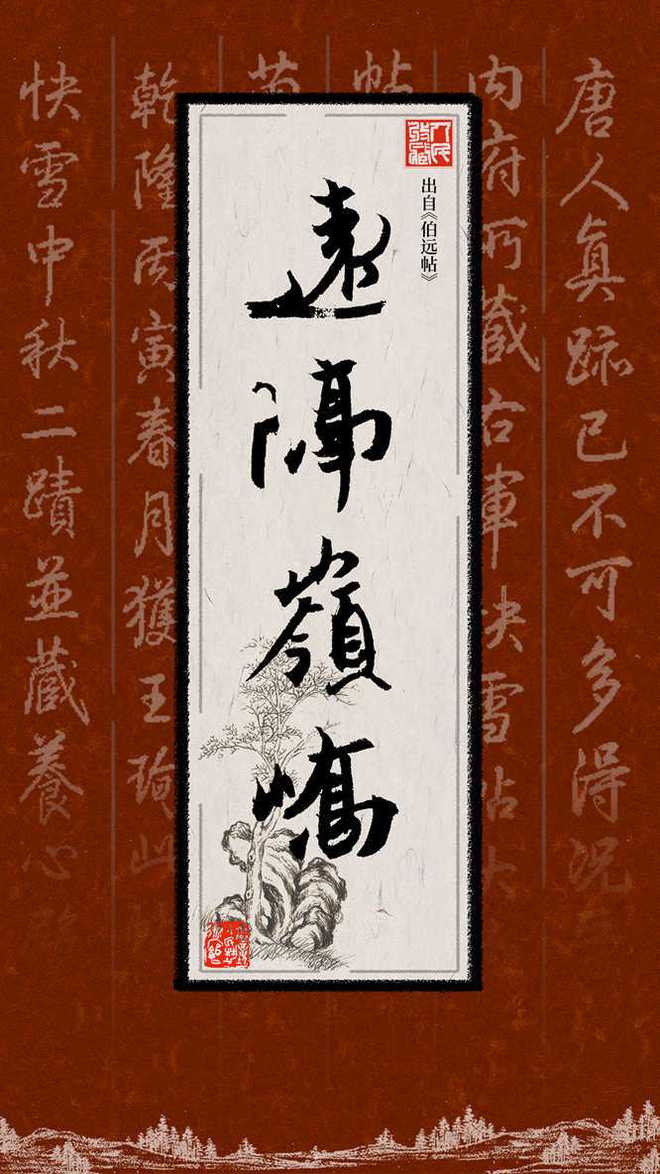 出自《伯远帖》
遠隔嶺嶠
唐人真跡已不可多得況
内府所藏右軍快雪帖大
帖
乾隆丙寅春月獲王珣此
快雪中秋二蹟並藏養心